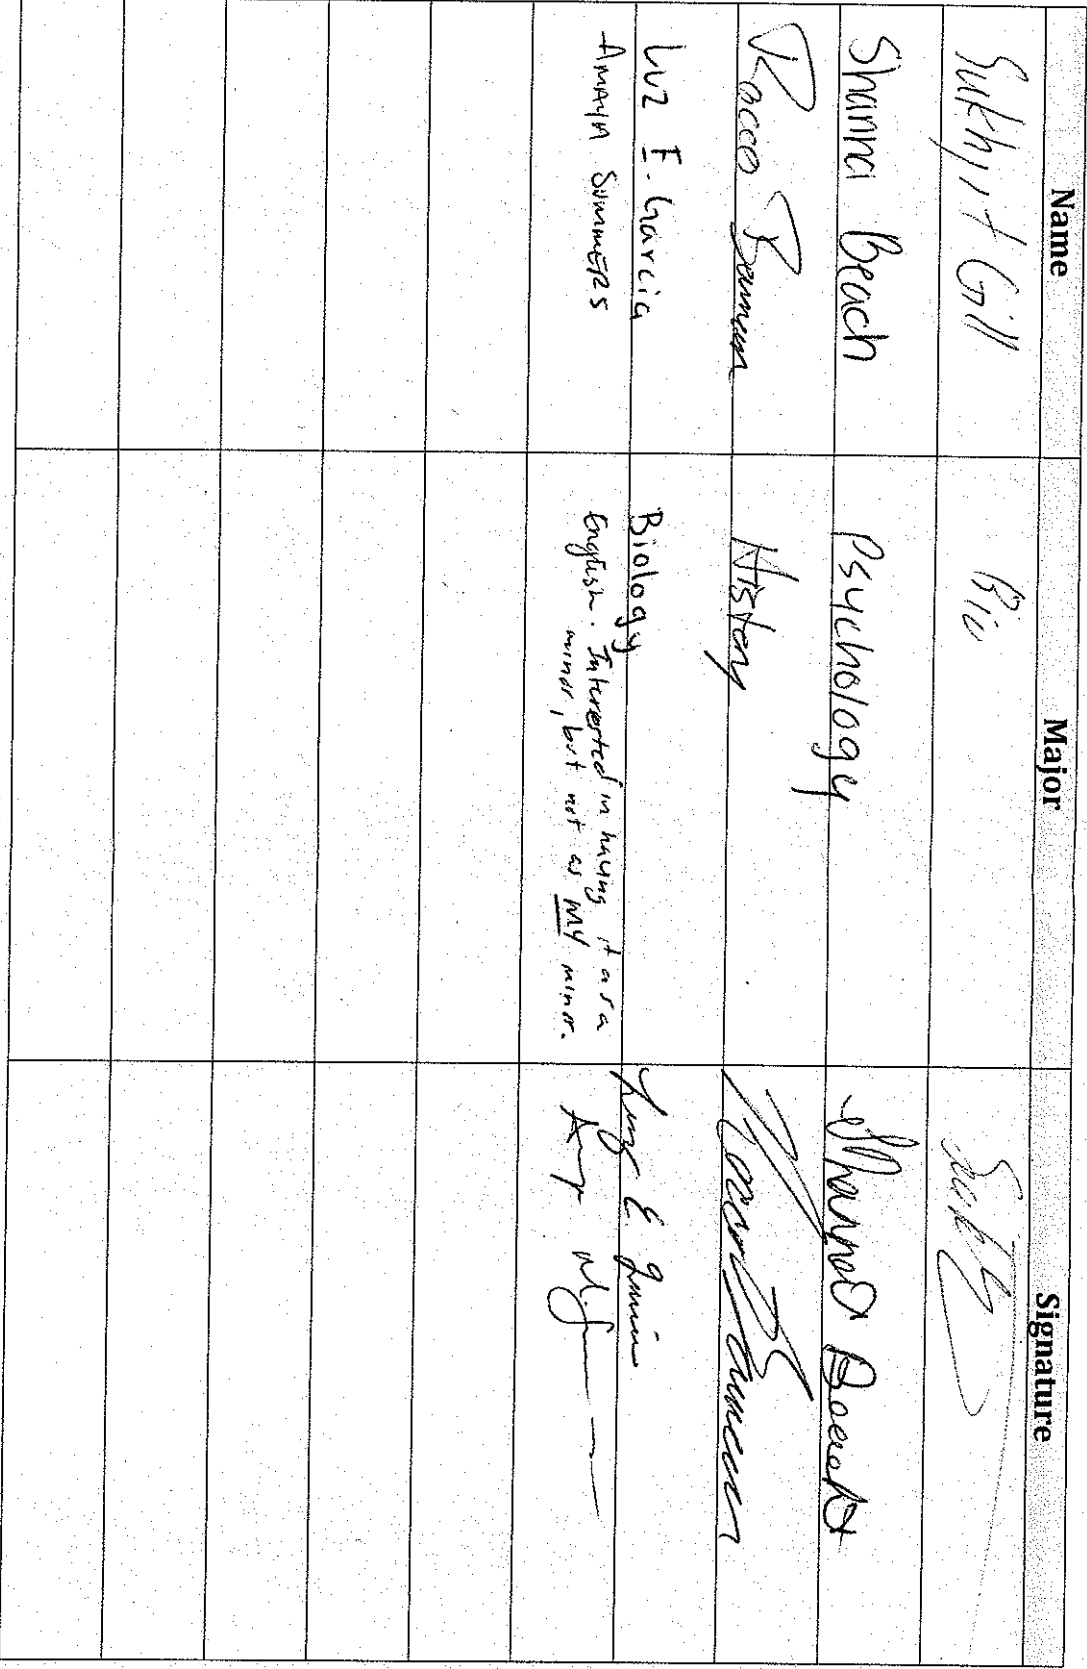 Name Major Signature
Sukhjit Gill Bio
Shanna Beach Psychology Shanna Beach
Rocco Bowman History
Luz E. Garcia Biology Luz E Garcia
Amayn Summers English. Interested in having it as a
minor, but not as MY minor.